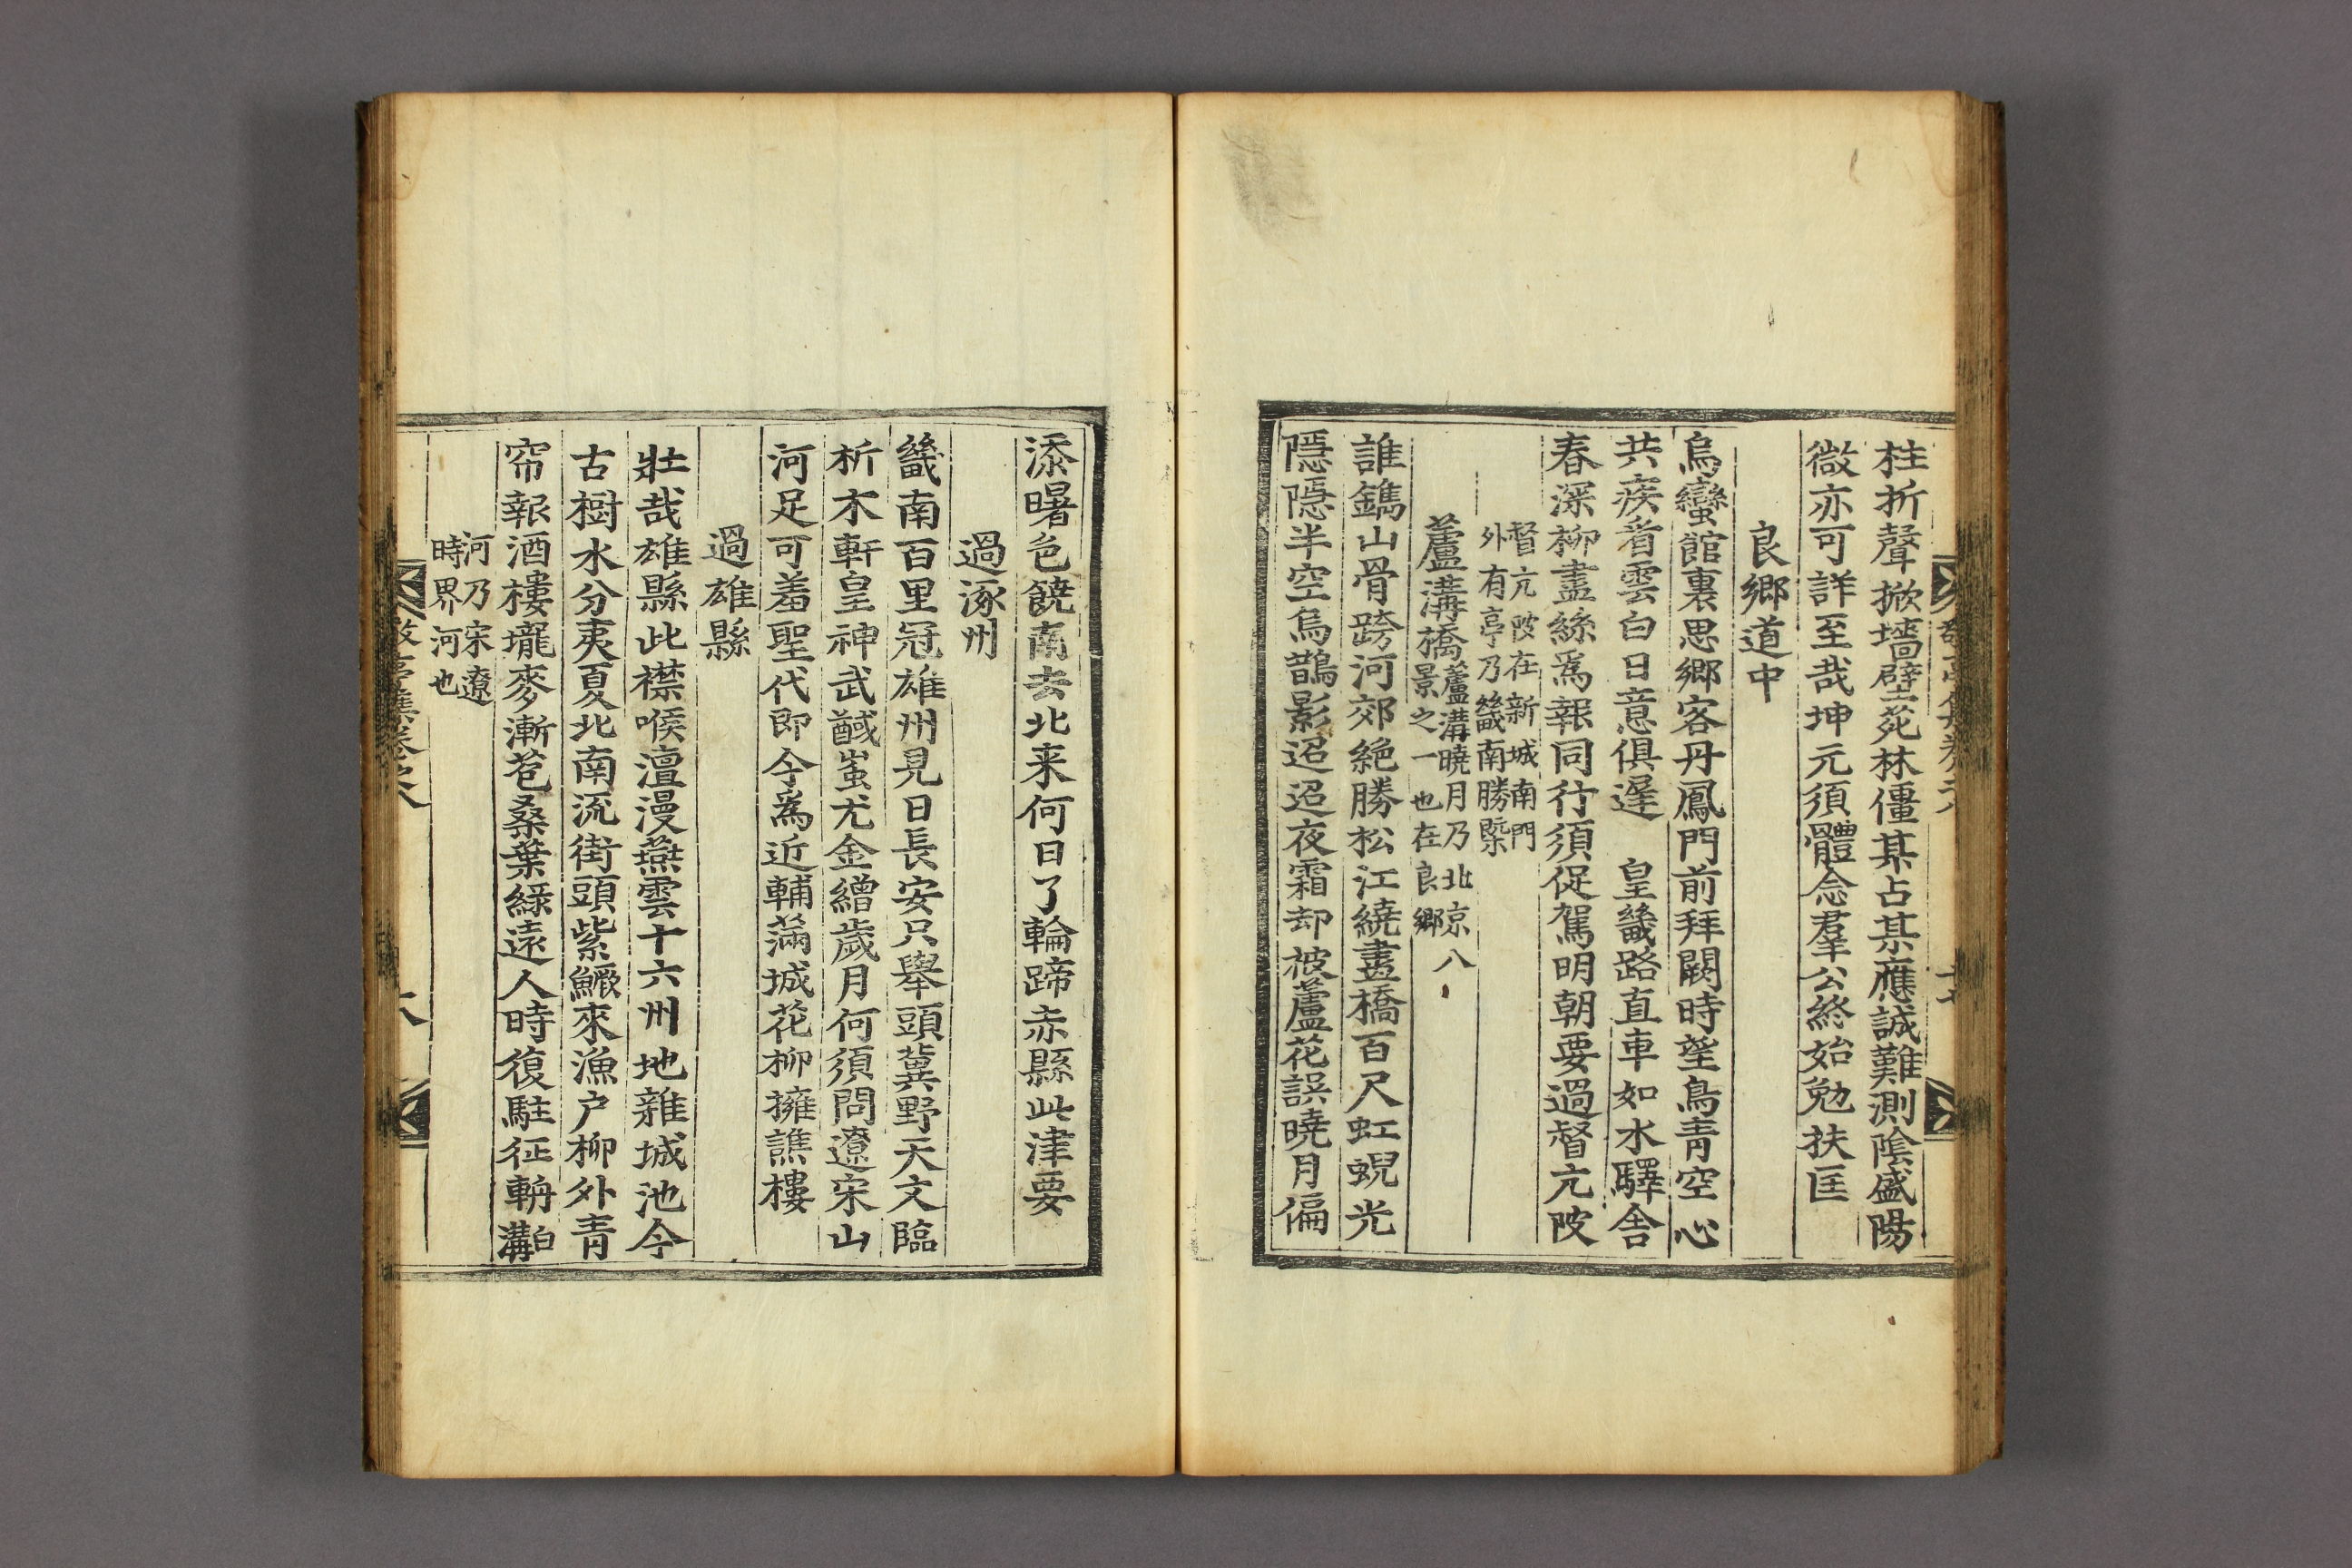 柱折聲掀墻壁莞林僵某占某應誠難測陰盛陽
微亦可詳至哉坤元須體念羣公終始勉扶匡
良鄉道中
烏蠻館裏思鄉客丹鳳門前拜闕時望鳥青空心
共疾看雲白日意俱遲　皇畿路直車如水驛舍
春深柳盡絲爲報同行須促駕明朝要過督亢陂
督亢陂在新城南門
外有亭乃畿南勝槩
蘆溝橋蘆溝曉月乃北京八
景之一也在良鄉
誰鐫山骨跨河郊絶勝松江繞畫橋百尺虹蜺光
隱隱半空烏鵲影迢迢夜霜却被蘆花誤曉月偏
添曙色饒南去北来何日了輪蹄赤縣此津要
過涿州
畿南百里冠雄州見日長安只舉頭冀野天文臨
析木軒皇神武馘蚩尤金繒歲月何須問遼宋山
河足可羞聖代即今爲近輔滿城花柳擁譙樓
過雄縣
壯哉雄縣此襟喉澶漫燕雲十六州地雜城池今
古樹水分夷夏北南流街頭紫鱖來漁户柳外青
帘報酒樓壠麥漸苞桑葉綠遠人時復駐征輈白溝
河乃宋遼
時界河也